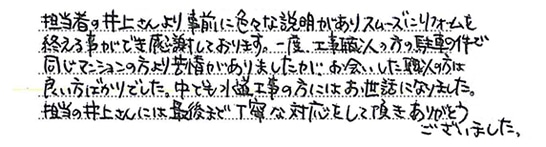 担当者の井上さんより事前に色々な説明がありスムーズにリフォームを
終える事ができ感謝しております。一度、工事職人の方の駐車の件で
同じマンションの方より苦情がありましたが、お会いした職人の方は
良い方ばかりでした。中でも水道工事の方にはお世話になりました。
担当の井上さんには最後まで丁寧な対応をして頂きありがとう
ございました。